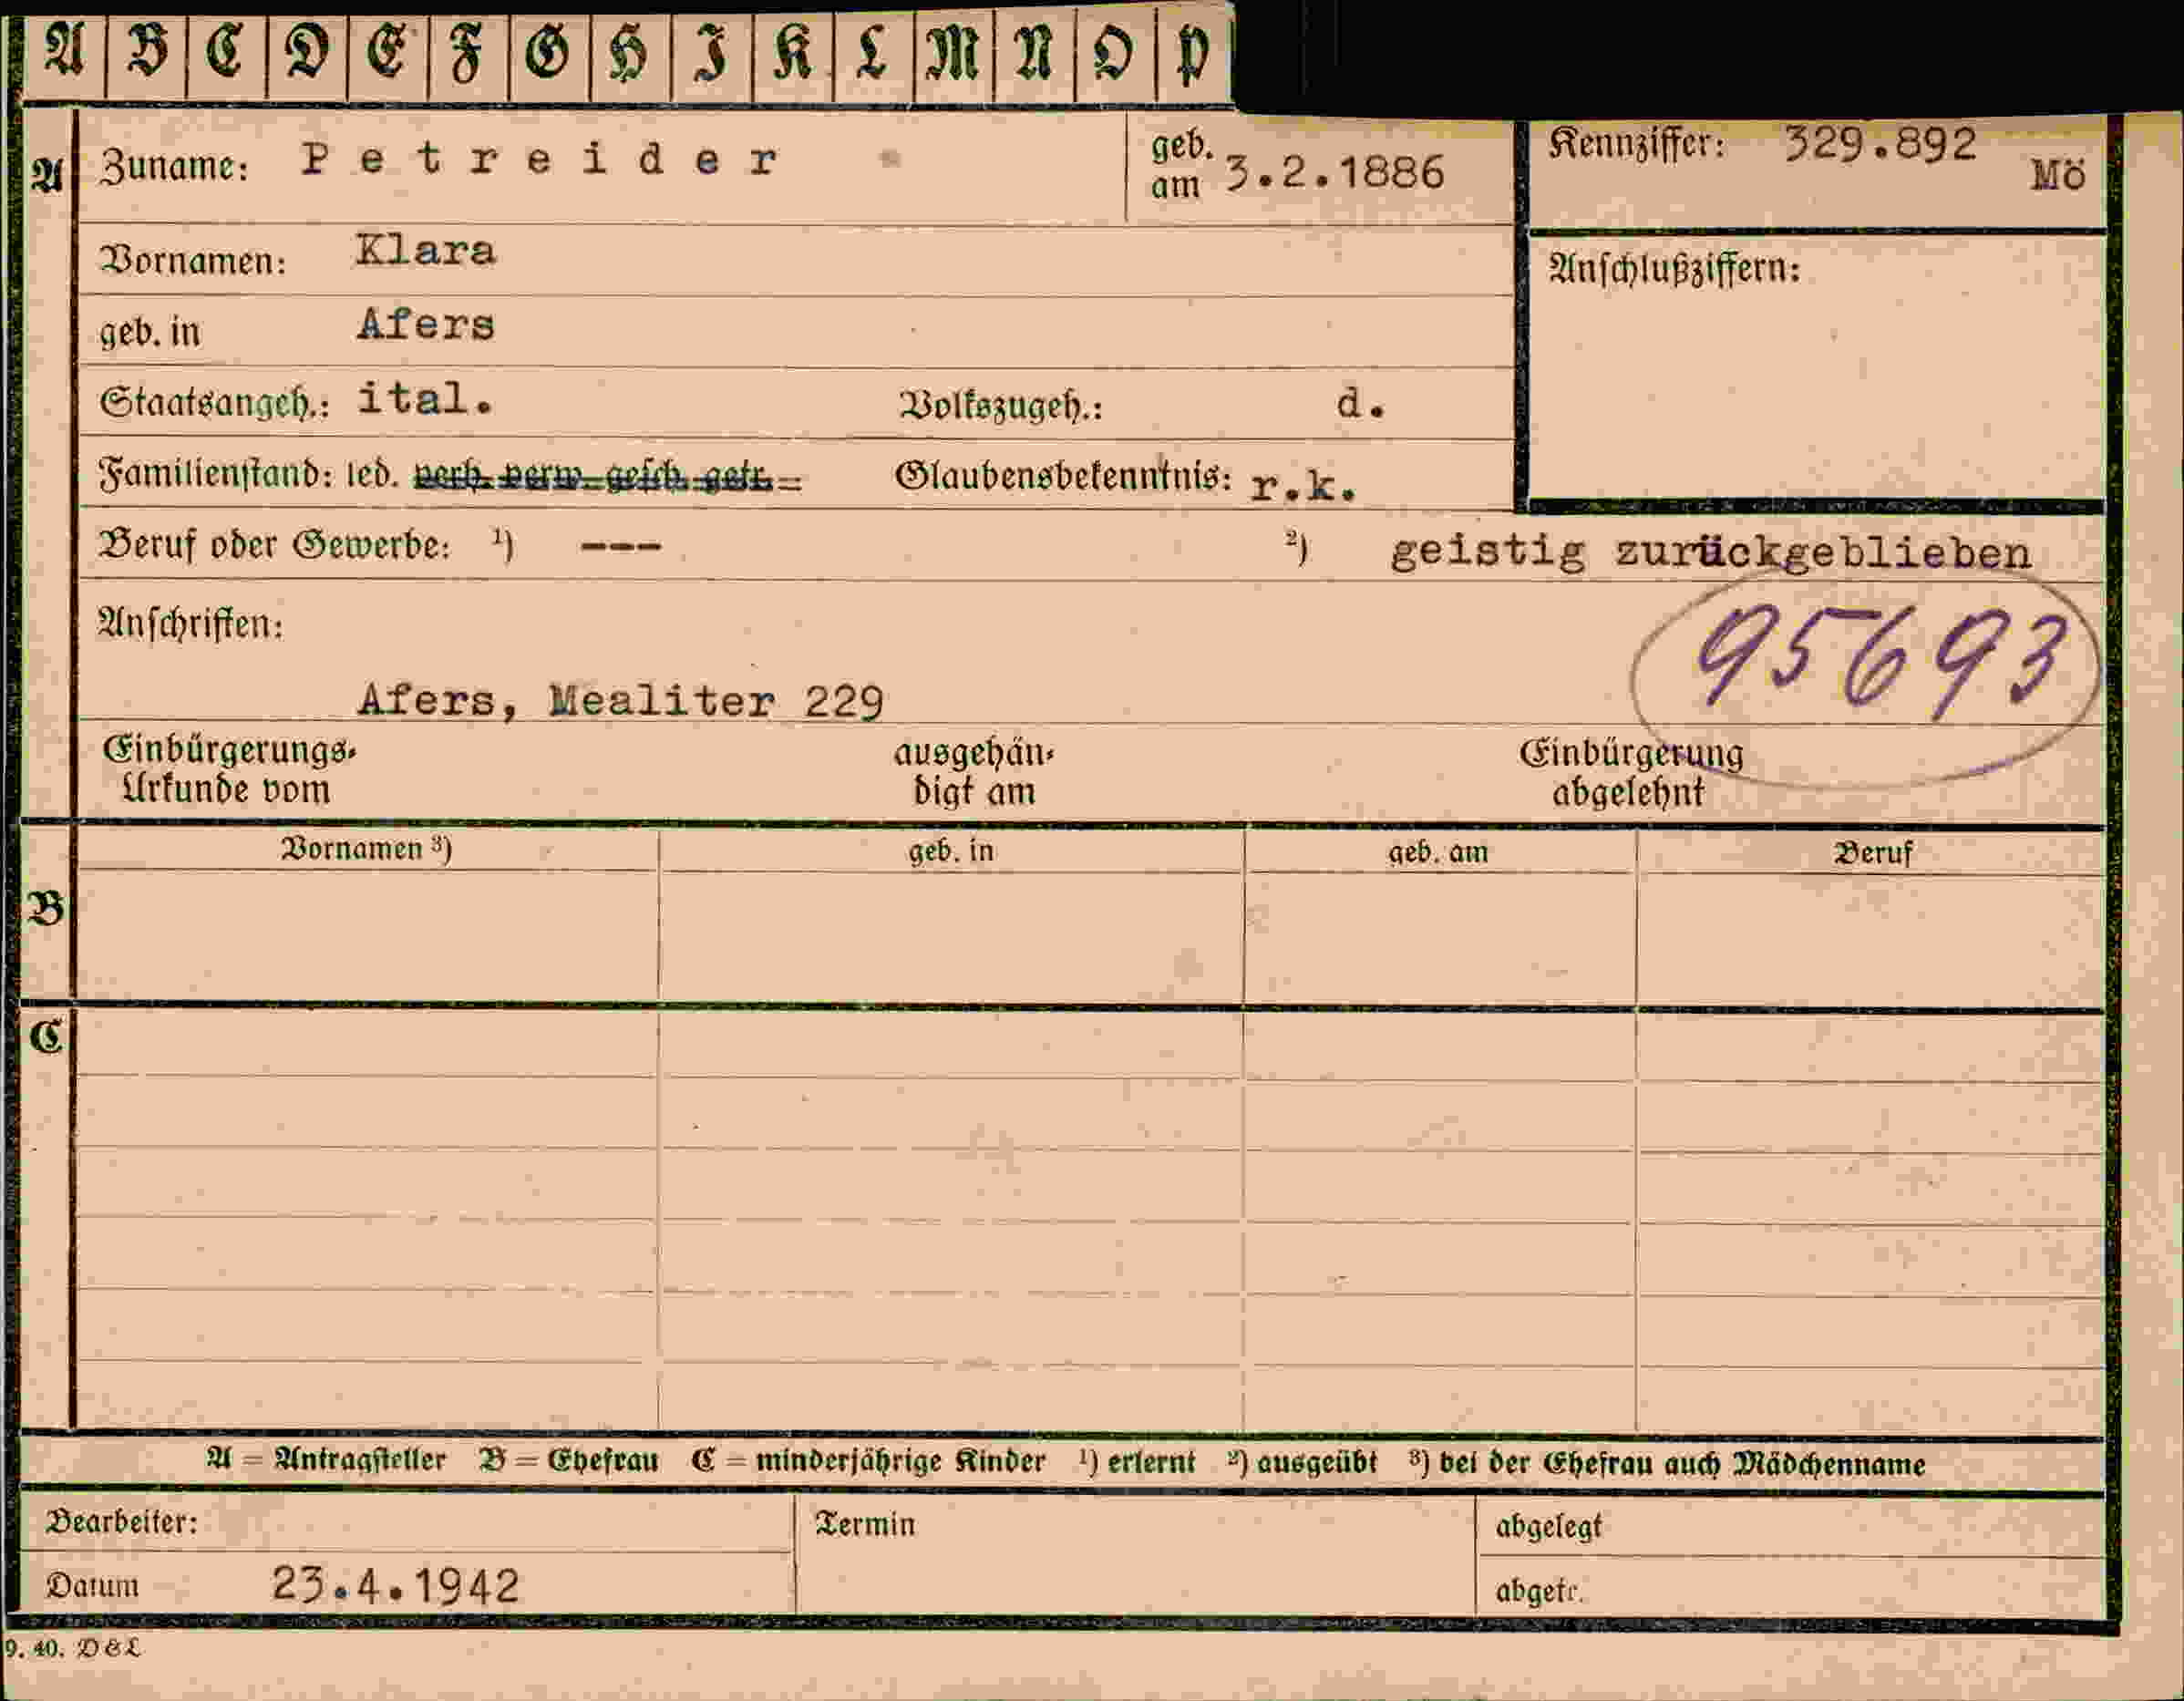 A B C D E F G H I K L M N O P
A Zuname: Petreider geb. am 3.2.1886 Kennziffer: 329.892 Mö
Vornamen: Klara Anschlußziffern:
geb. in Afers
Staatsangeh.: ital. Volkszugeh.: d.
Familienstand: led. verh. verw. gesch. getr. Glaubensbekenntnis: r.k.
Beruf oder Gewerbe: ¹) --- ²) geistig zurückgeblieben
Anschriften: 95693
Afers, Mealiter 229
Einbürgerungs-Urkunde vom ausgehändigt am Einbürgerung abgelehnt
Vornamen ³) geb. in geb. am Beruf
B
C
A = Antragsteller B = Ehefrau C = minderjährige Kinder ¹) erlernt ²) ausgeübt ³) bei der Ehefrau auch Mädchenname
Bearbeiter: Termin abgelegt
Datum 23.4.1942 abgetr.
9. 40. D&L